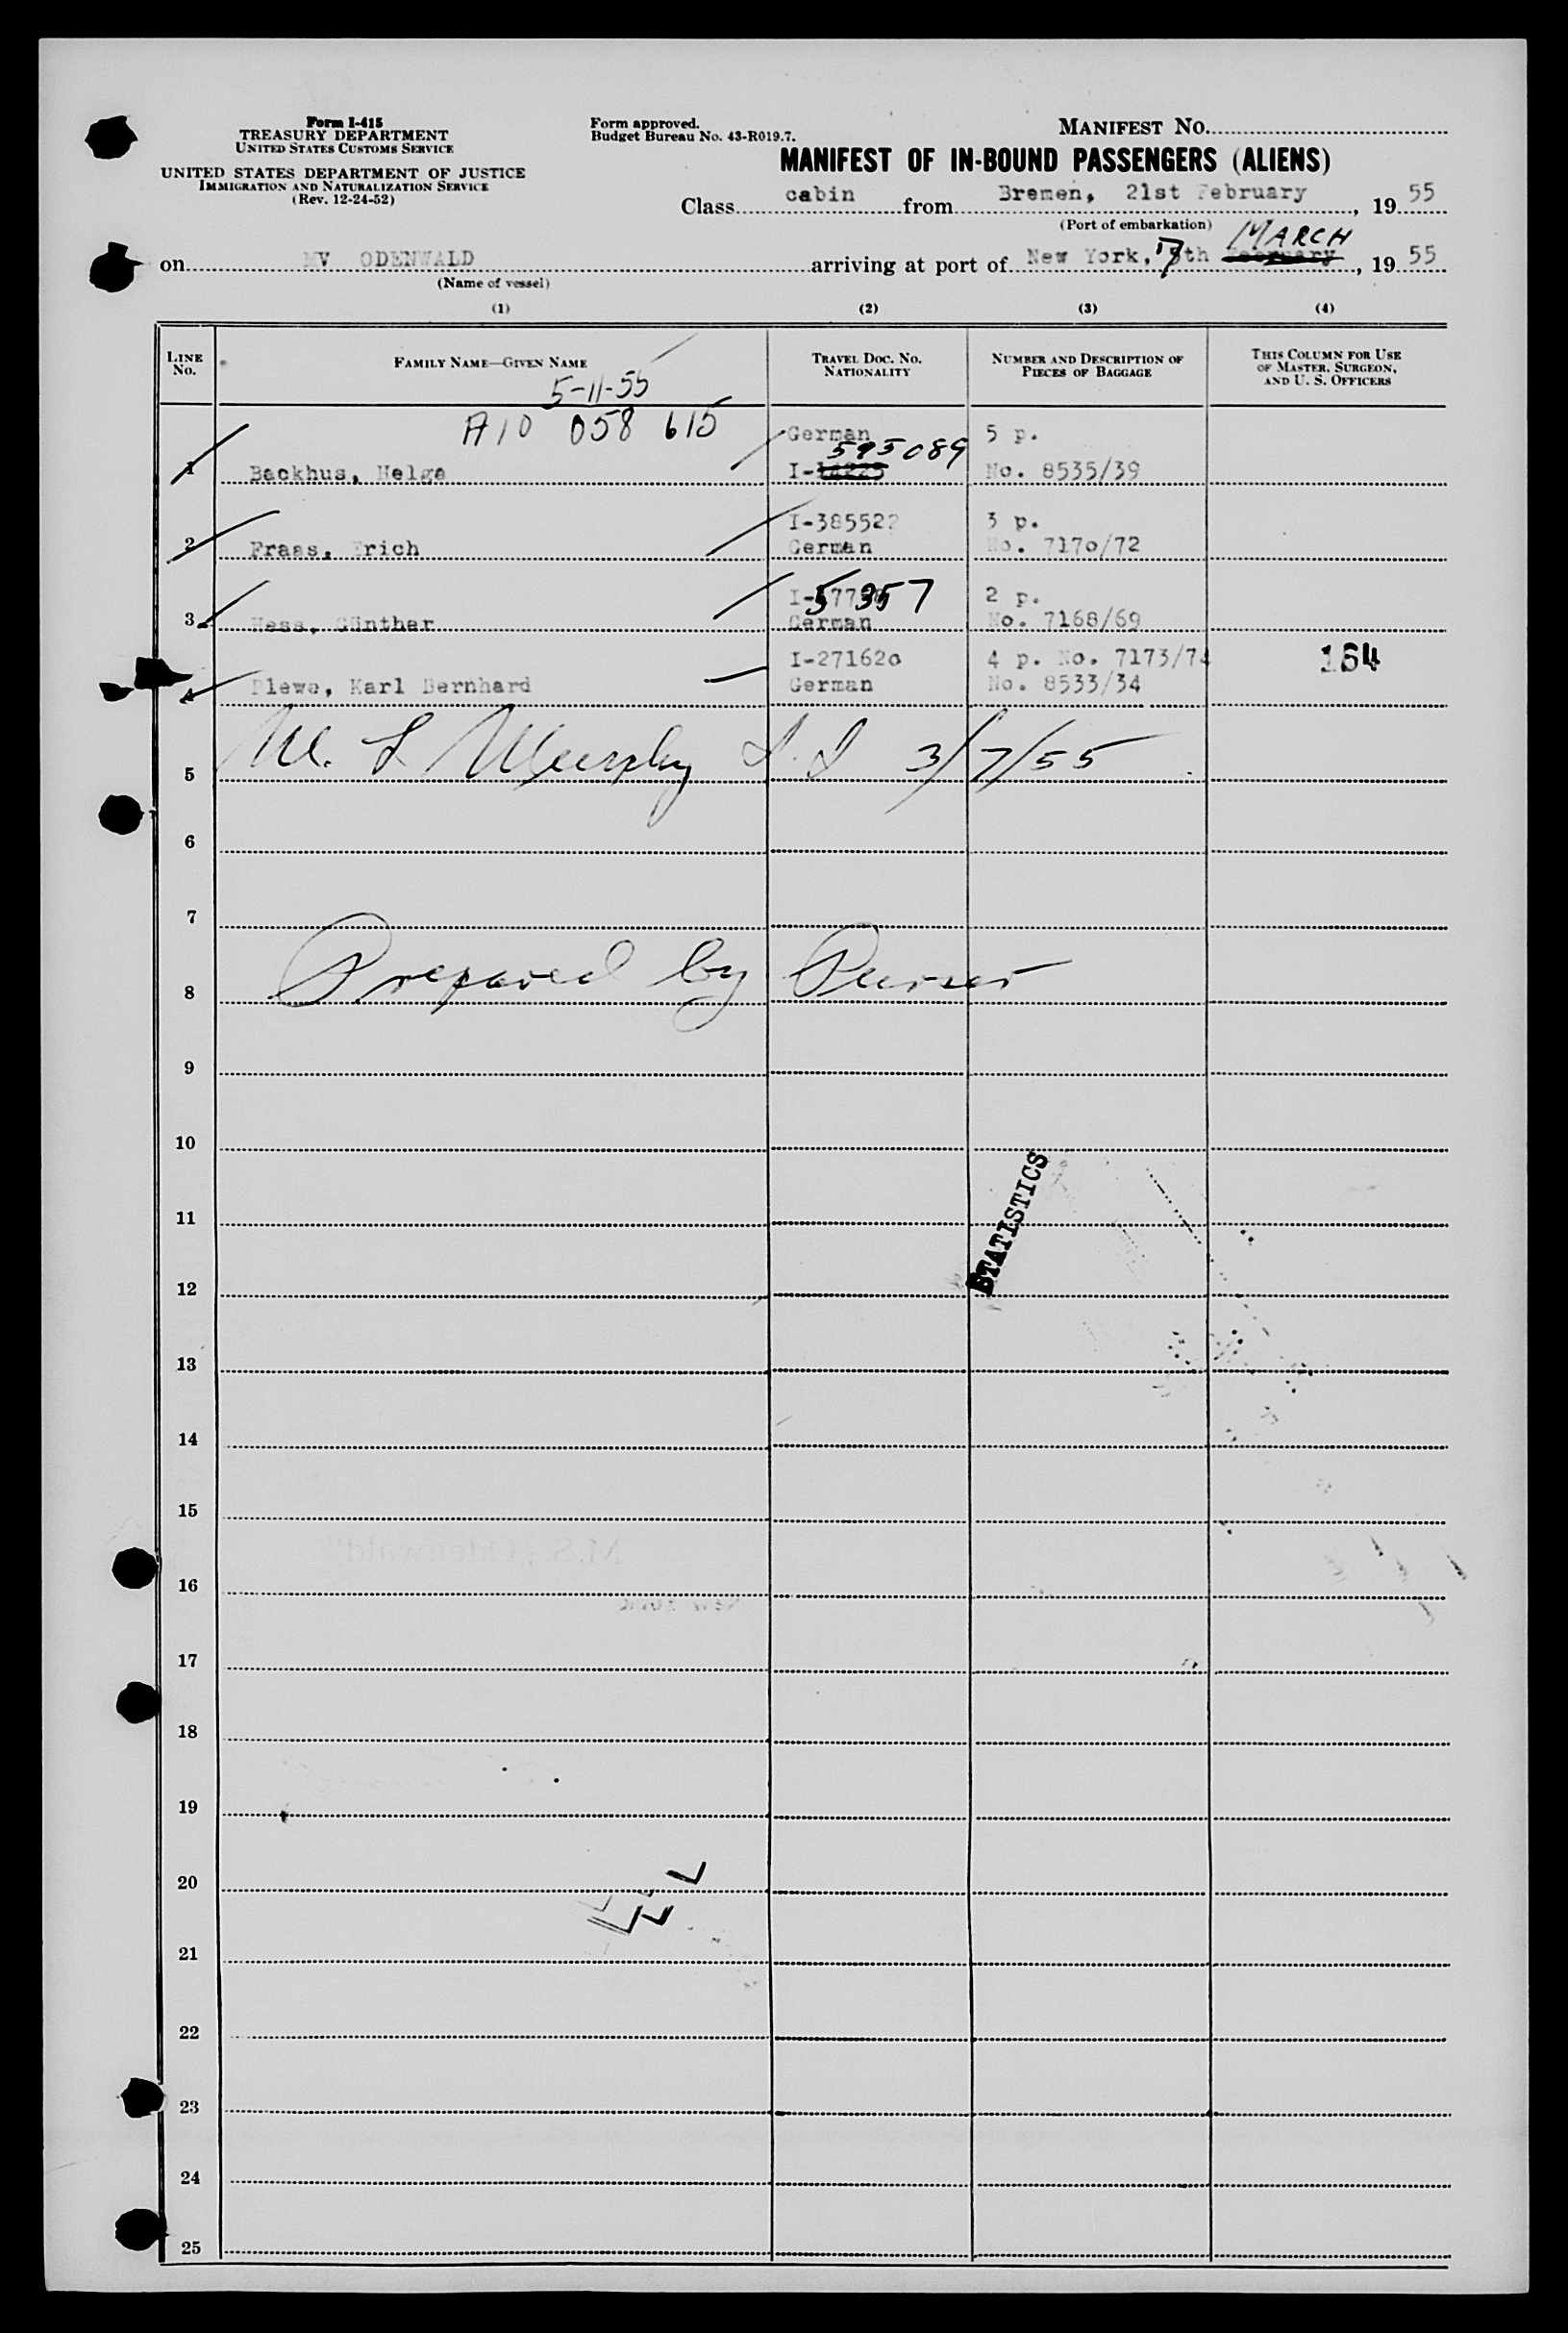 Form I-415
TREASURY DEPARTMENT
UNITED STATES CUSTOMS SERVICE
UNITED STATES DEPARTMENT OF JUSTICE
IMMIGRATION AND NATURALIZATION SERVICE
(Rev. 12-24-52)
Form approved.
Budget Bureau No. 43-R019.7.
MANIFEST NO.
MANIFEST OF IN-BOUND PASSENGERS (ALIENS)
Class cabin from Bremen, 21st February, 19 55
(Port of embarkation)
MARCH
on MV ODENWALD arriving at port of New York, 7th February, 19 55
(Name of vessel)
(1) (2) (3) (4)
LINE NO. FAMILY NAME—GIVEN NAME TRAVEL DOC. NO. NATIONALITY NUMBER AND DESCRIPTION OF PIECES OF BAGGAGE THIS COLUMN FOR USE OF MASTER, SURGEON, AND U. S. OFFICERS
5-11-55
A10 058 615 German 5 p.
595089
1 Backhus, Helga I- No. 8535/39
I-385522 3 p.
2 Fraas, Erich German No. 7170/72
I- 357 2 p.
3 Hess, Günther German No. 7168/69
I-271620 4 p. No. 7173/74 164
4 Plewe, Karl Bernhard German No. 8533/34
M. L Murphy I.I 3/7/55
5
6
7
Prepared by Purser
8
9
10
STATISTICS
11
12
13
14
15
M.S. "Odenwald"
16
NEW YORK
17
18
19
20
21
22
23
24
25